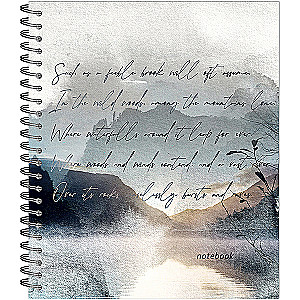 Such as a feeble brook will oft assume
In the wild woods, among the mountains lone,
Where waterfalls around it leap for ever,
Where woods and winds contend, and a vast river
Over its rocks ceaselessly bursts and raves.
notebook